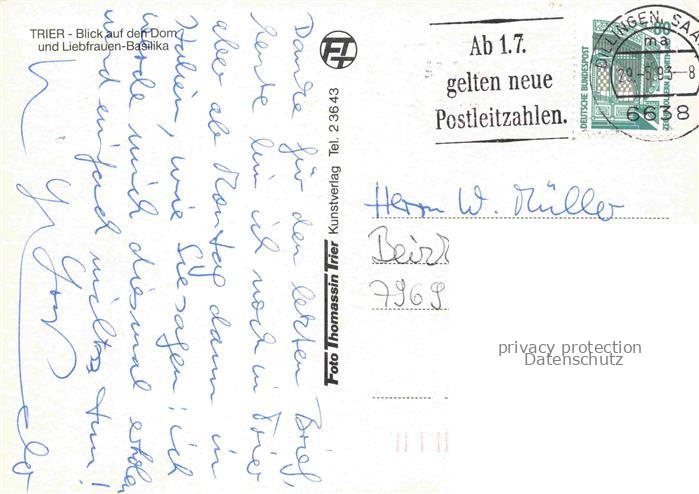 TRIER - Blick auf den Dom
und Liebfrauen-Basilika
Danke für den letzten Brief,
heute bin ich noch in Trier
aber ab Montag dann in
Italien, wie Sie sagen: ich
werde mich diesmal erholen
und einfach nichts tun!
Foto Thomassin Trier Kunstverlag Tel. 2 36 43
Ab 1.7.
gelten neue
Postleitzahlen.
DILLINGEN, SAAR
ma
29.-5.93-8
6638
80
DEUTSCHE BUNDESPOST
Herrn W. Müller
7969
privacy protection
Datenschutz